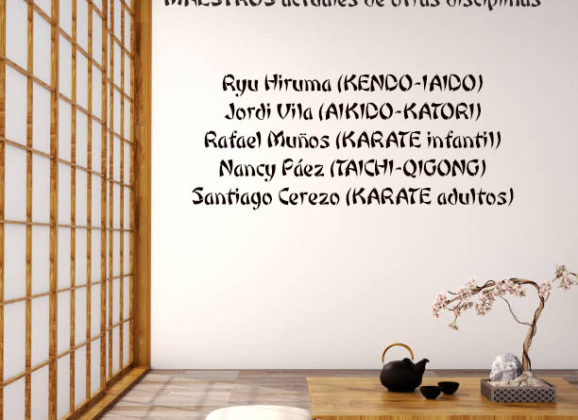 MAESTROS actuales de otras disciplinas
Ryu Hiruma (KENDO-IAIDO)
Jordi Vila (AIKIDO-KATORI)
Rafael Muños (KARATE infantil)
Nancy Páez (TAICHI-QIGONG)
Santiago Cerezo (KARATE adultos)